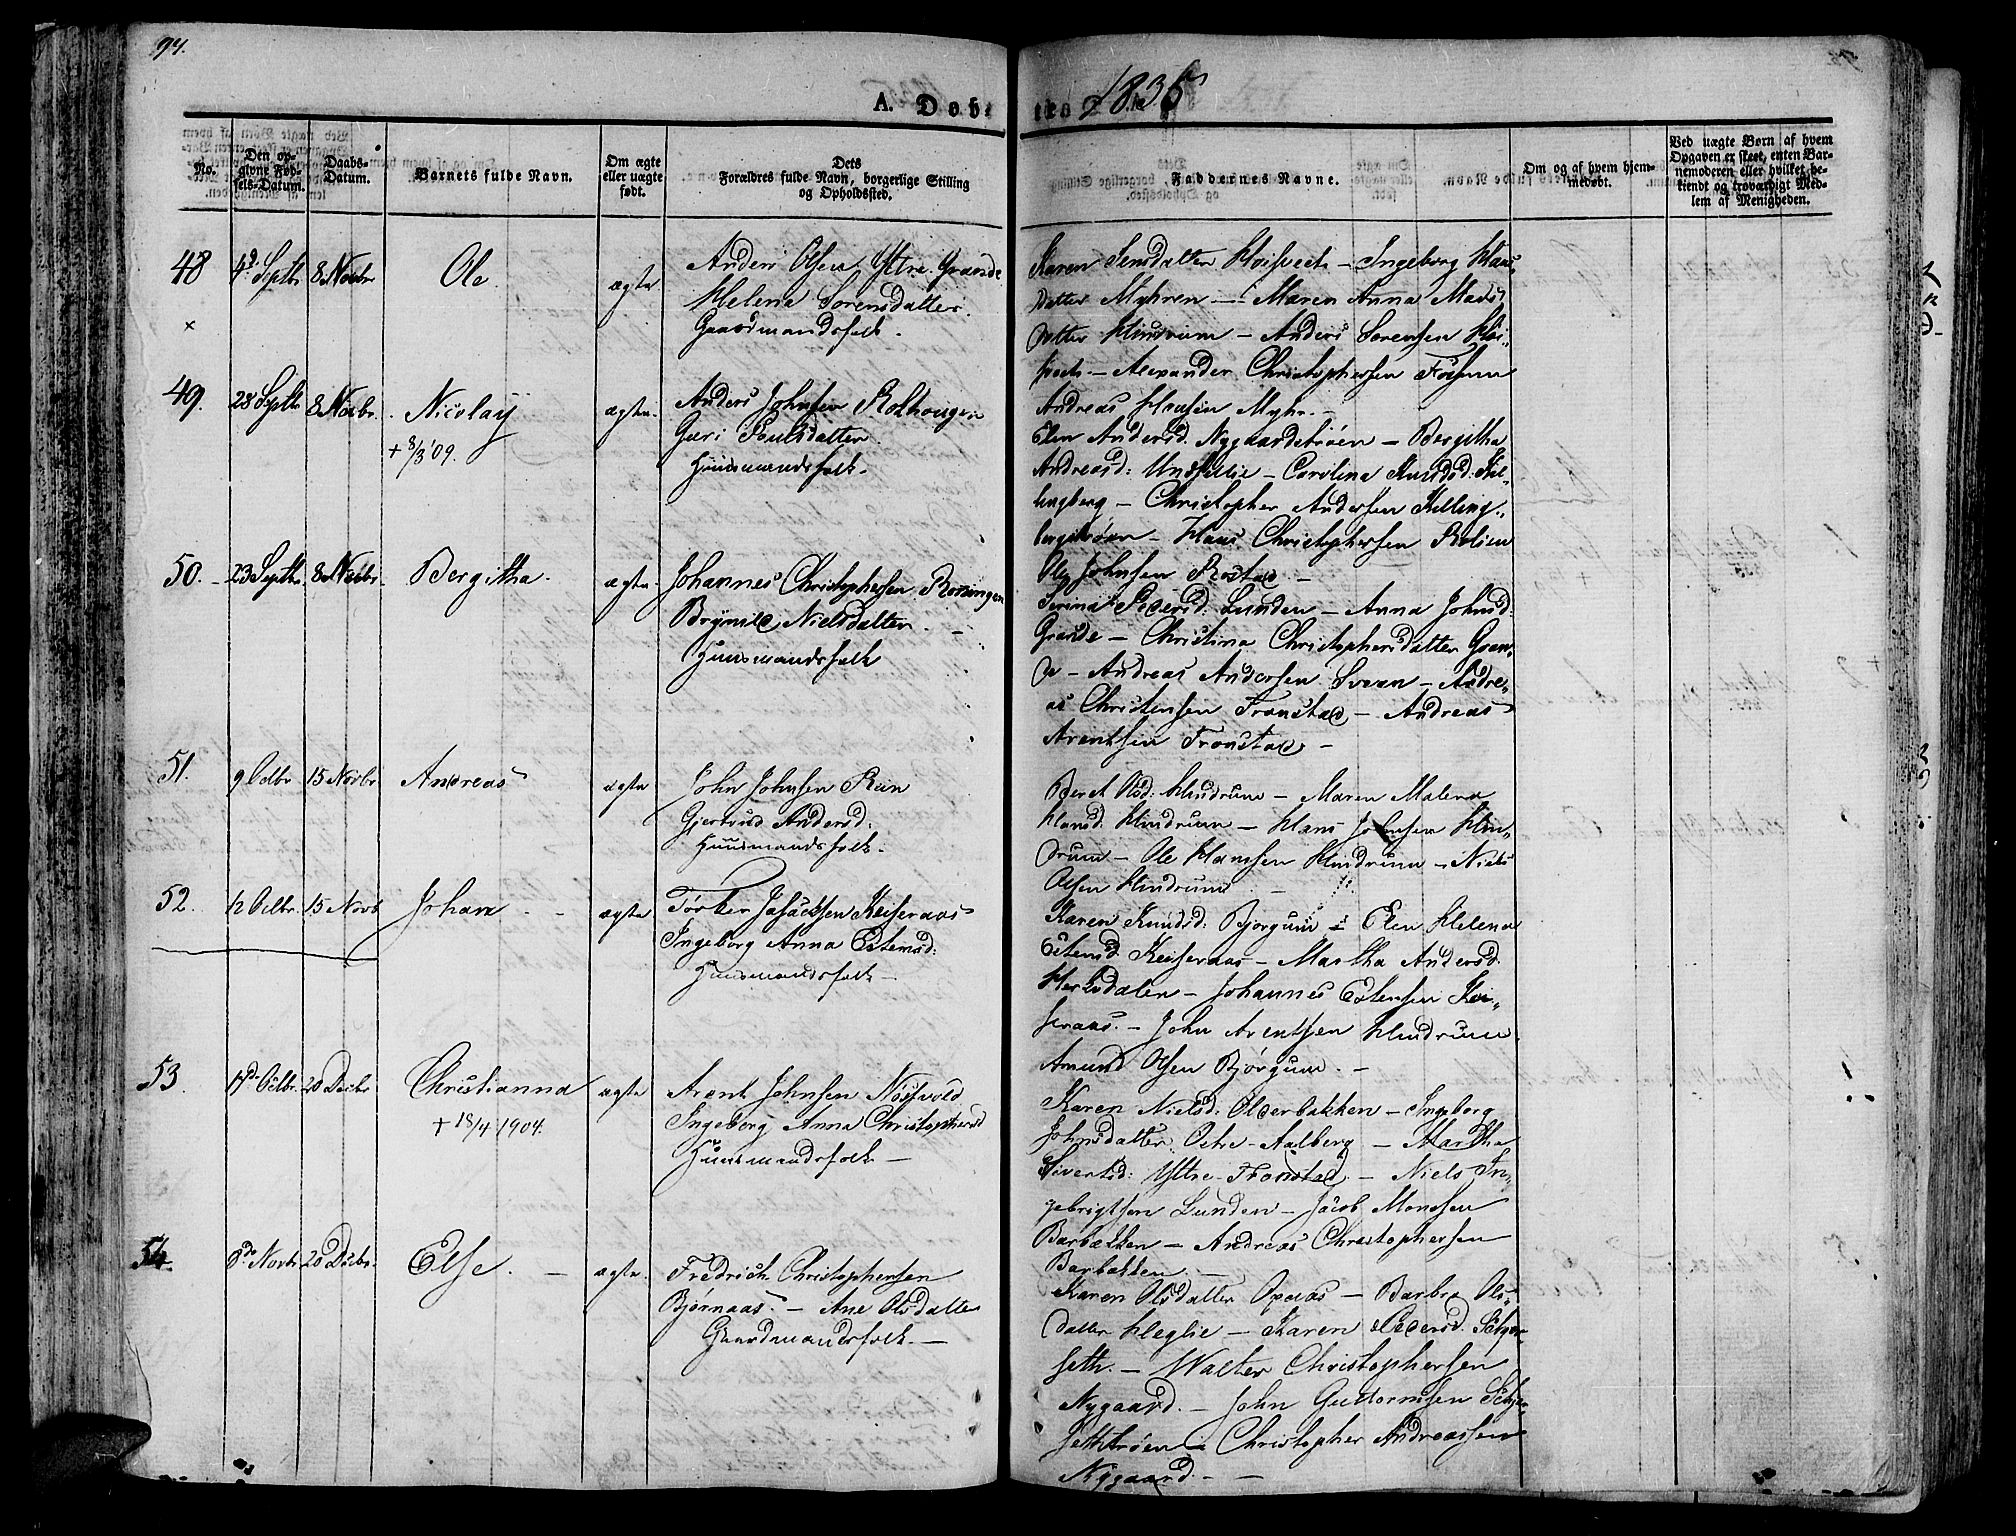 94.
A. Døbte 1835
No.
Den op-
givne Fød-
sels-Datum.
Daabs-
Datum.
Barnets fulde Navn.
Om ægte
eller uægte
født.
Dets
Forældres fulde Navn, borgerlige Stilling
og Opholdssted.
Faddernes Navne.
Om og af hvem hjem-
medøbt.
Ved uægte Børn af hvem
Opgaven er skeet, enten Bar-
nemoderen eller hvilket be-
kiendt og troværdigt Med-
lem af Menigheden.
48 4de Septbr 8 Novbr Ole. ægte
Anders Olsen Yttre Grande
Helena Sørensdatter.
Gaardmandsfolk.
Karen Jensdatter Høisveet – Ingeborg Hans-
datter Myhren – Maren Anna Mads-
datter Hindrum – Anders Sørensen Høi-
sveet – Alexander Christophersen Fossum
Andreas Hansen Myhr. –
49. 28 Septbr 8 Novbr. Nicolay ægte.
+ 8/3 '09.
Anders Johnsen Rokhougen
Guri Poulsdatter.
Huusmandsfolk.
Elen Andersd. Nygaardstrøen – Bergitha
Andreasd: Undselie – Carolina Knudsd: Kil-
lingberg – Christopher Andersen Killing-
bergstrøen – Hans Christophersen Rolien
Ole Johnsen Rostad –
50. 23 Septbr 8 Novbr. Bergitha. ægte.
Johannes Christophersen Rønningen
Brynild Nielsdatter –
Huusmandsfolk
Serina Pedersd: Lunden – Anna Johnsd:
Grande – Christina Christophersdatter Gran-
de – Andreas Andersen Svean – Andre-
as Christensen Fronstad – Andreas
Arentsen Fronstad –
51. 9 Octbr 15 Novbr Andreas ægte
John Johnsen Rein
Gjertrud Andersd:
Huusmandsfolk.
Beret Olsd: Hindrum – Maren Malena
Hansd: Hindrum – Hans Johnsen Hin-
drum – Ole Hansen Hindrum – Niels
Olsen Hindrum. –
52. 12 Octbr. 15 Novb Johan – ægte
Torber Isachsen Keiseraas
Ingeborg Anna Estensd:
Huusmandsfolk –
Karen Knudsd: Bjørgum – Elen Helena
Estensd Keiseraas – Martha Andersd.
Herbsdalen – Johannes Estensen Kei-
seraas. – John Arentsen Hindrum.
Amund Olsen Bjørgum. –
53. 17de Octbr. 20 Decbr Christianna ægte
+ 18/4 1904.
Arent Johnsen Nøstvold
Ingeborg Anna Christophersd
Huusmandsfolk –
Karen Nielsd: Olderbakken – Ingeborg
Johnsdatter Østre Aalberg – Martha
Sivertsd: Yttre Fronstad – Niels In-
gebrigtsen Lunden – Jacob Monssen
Barbakken – Andreas Christophersen
Barbakken. –
54. 8de Novbr 20 Decbr. Else. – ægte.
Fredrich Christophersen
Bjørnaas. – Ane Olsdatter
Gaardmandsfolk. –
Karen Olsdatter Opaas – Barbro Ols-
datter Heglie – Karen Pedersd. Schjer-
seth. – Walter Christophersen
Nygaard. – John Guttormsen Schjer-
sethtrøen – Christopher Andreassen
Nygaard. –